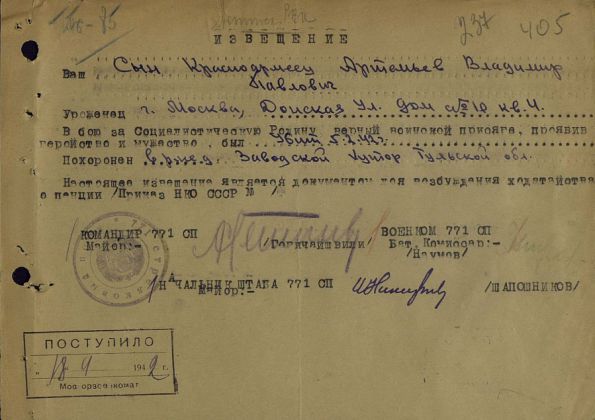 237 405
ИЗВЕЩЕНИЕ
Ваш Сын Красноармеец Артемьев Владимир
Павлович
Уроженец г. Москва, Донская ул. дом № 10 кв. 4.
В бою за Социалистическую Родину верный воинской присяге, проявив
геройство и мужество, был убит 5.2.42г.
Похоронен Заводской хутор Тульской обл.
Настоящее извещение является документом для возбуждения ходатайства
о пенции /Приказ НКО СССР № /
КОМАНДИР 771 СП
Майор:-
/Гогичайшвили/
ВОЕНКОМ 771 СП
Бат. Комиссар:-
/Наумов/
НАЧАЛЬНИК ШТАБА 771 СП
Майор:-
/ШАПОШНИКОВ/
ПОСТУПИЛО
18 4 1942 г.